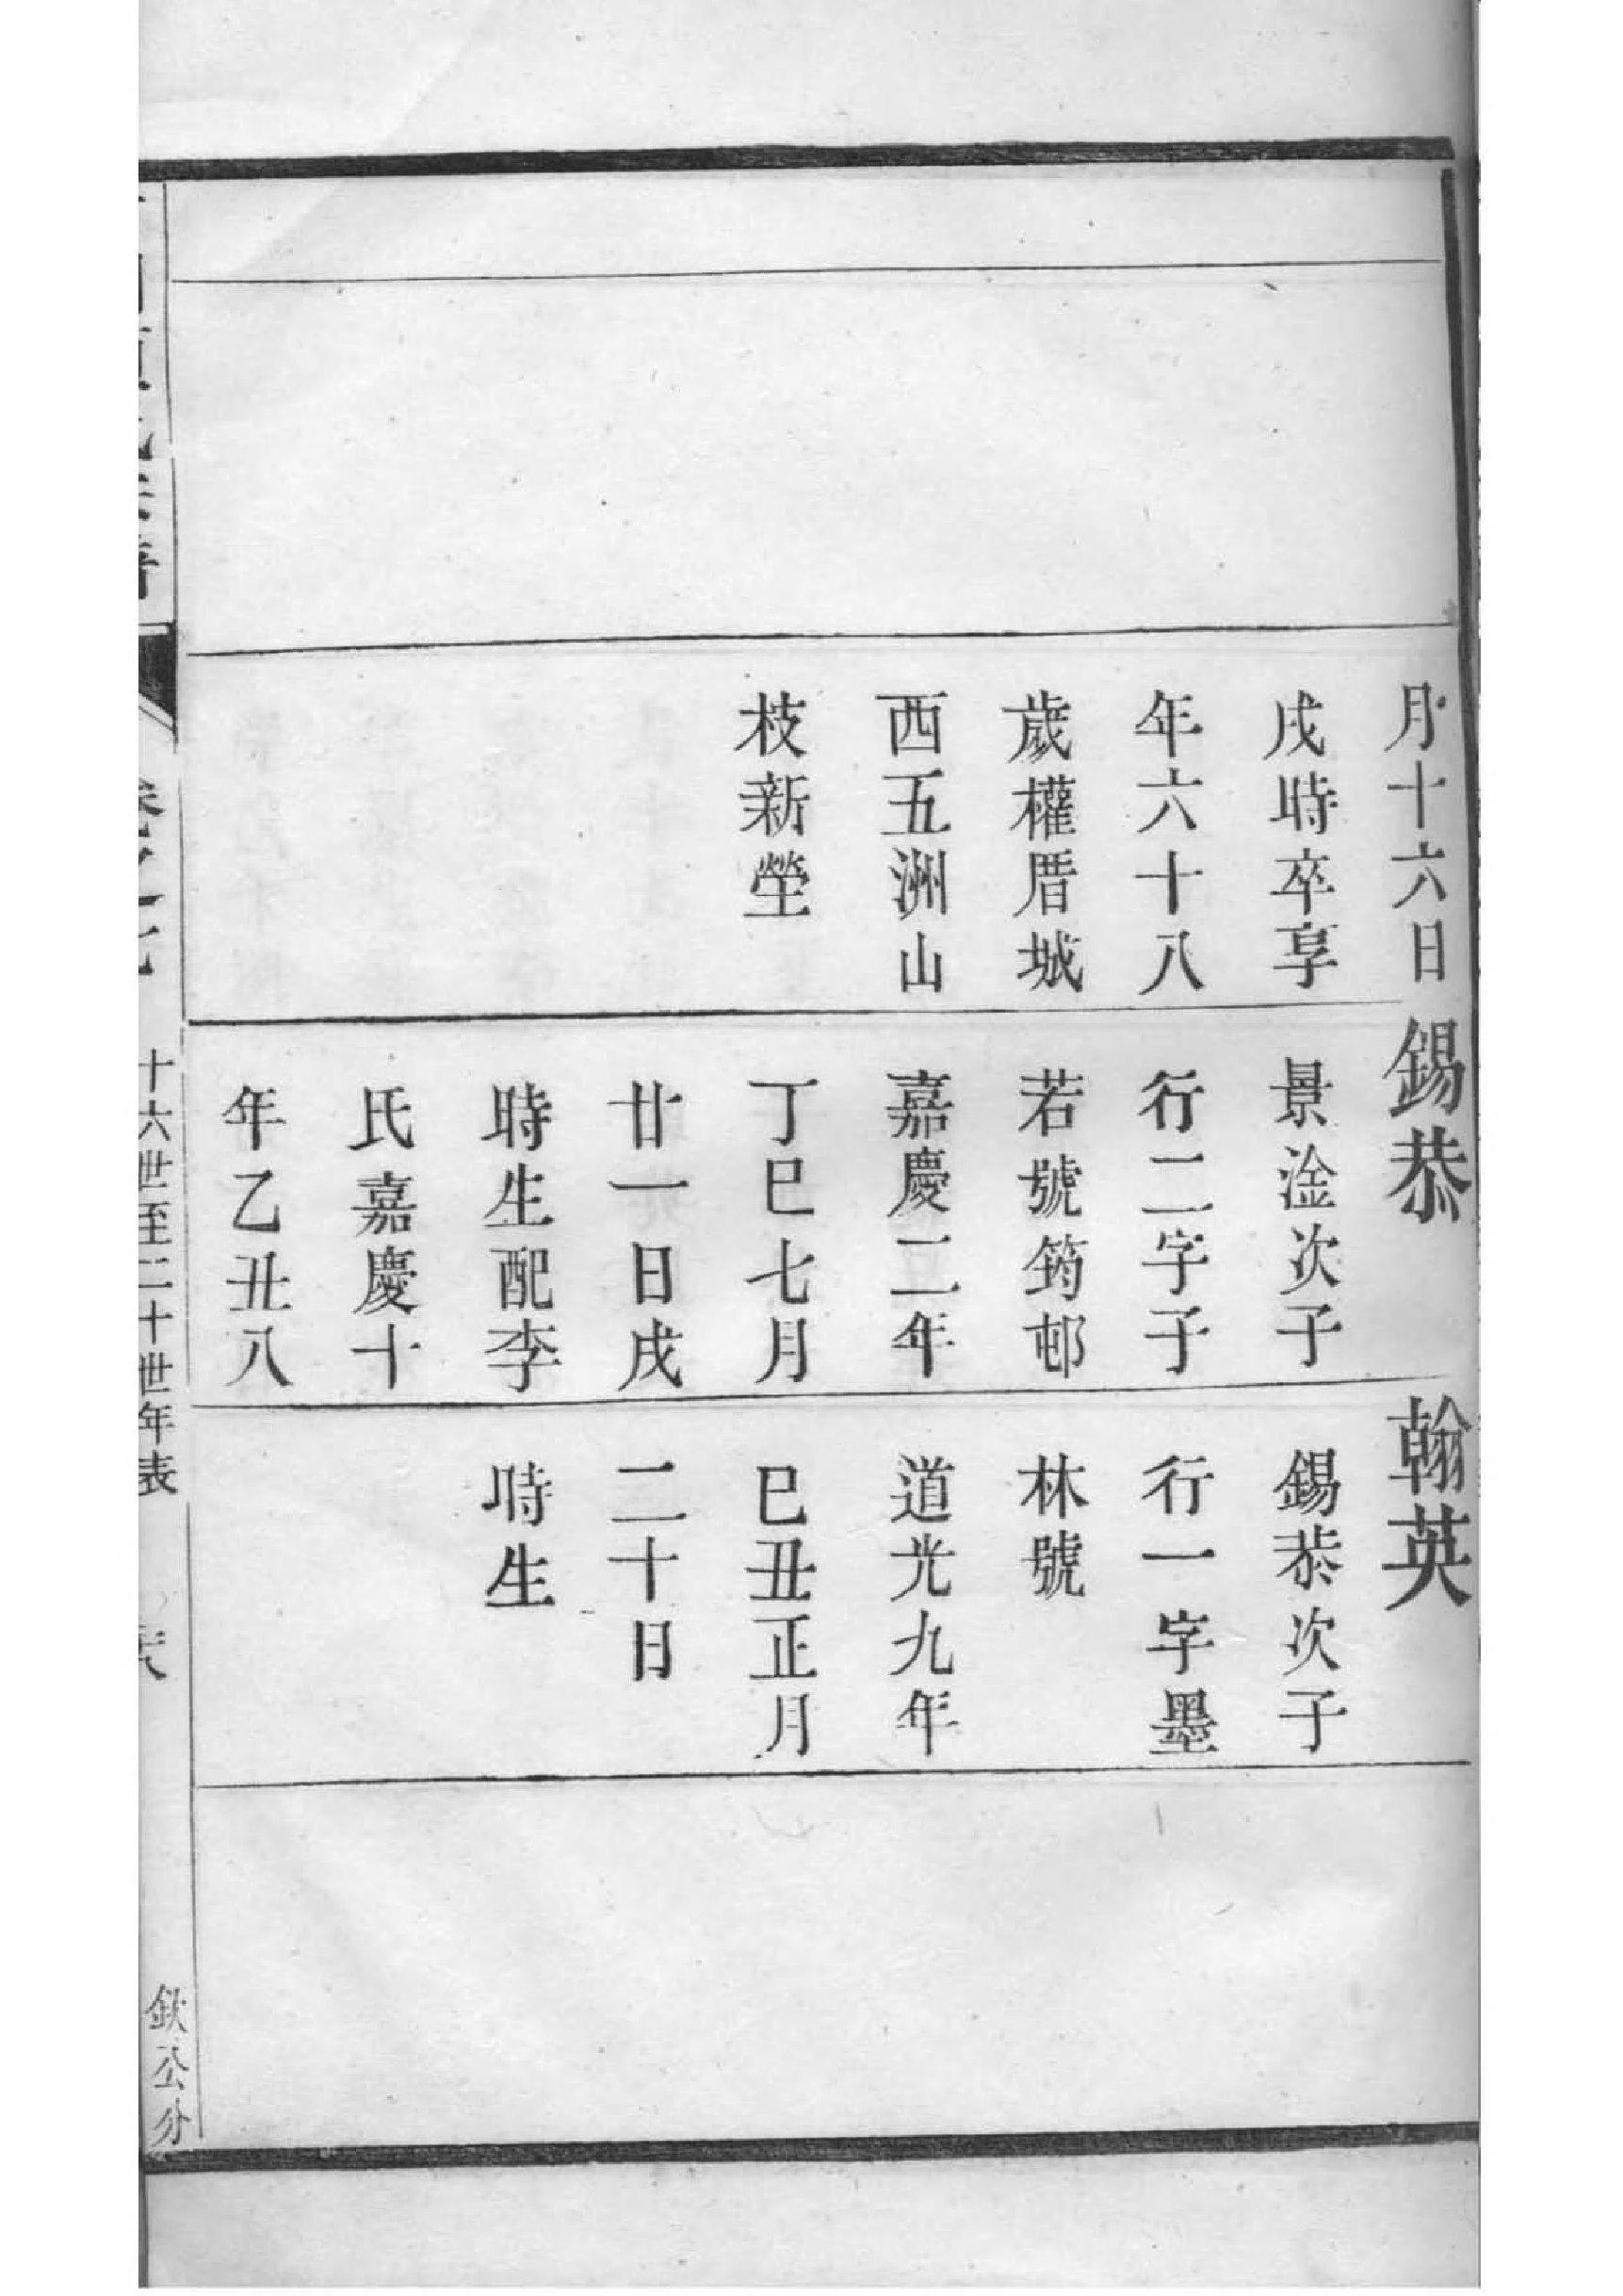 月十六日
戌時卒享
年六十八
歲權厝城
西五洲山
枝新塋
錫恭
景淦次子
行二字子
若號筠邨
嘉慶二年
丁巳七月
廿一日戌
時生配李
氏嘉慶十
年乙丑八
翰英
錫恭次子
行一字墨
林號
道光九年
巳丑正月
二十日
時生
十六世至二十世年表
欽公分